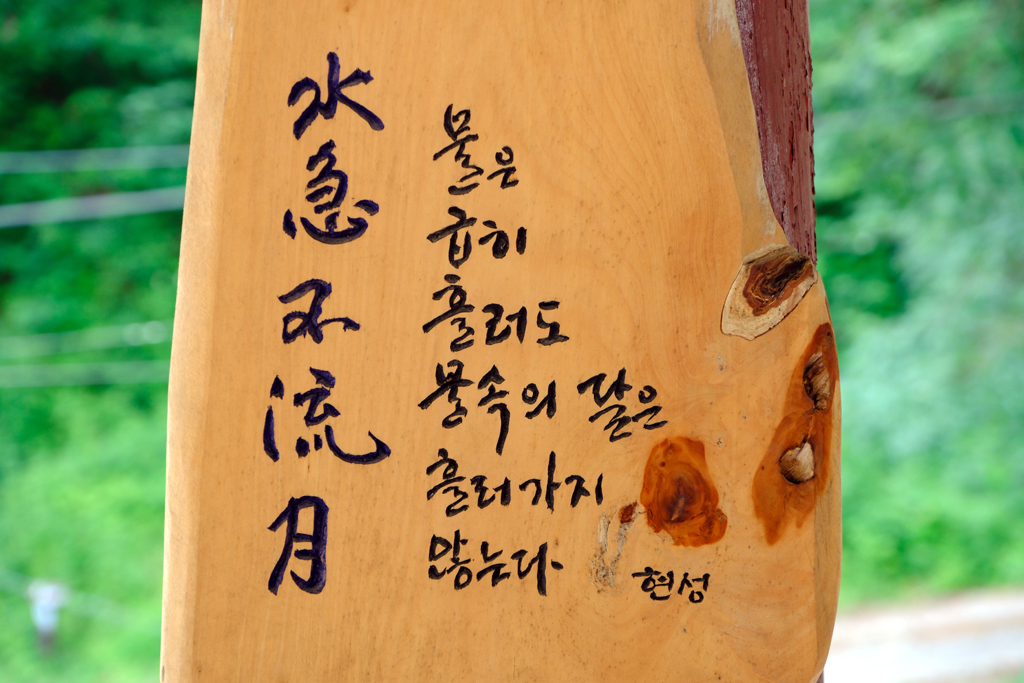 水急不流月
물은
급히
흘러도
물속의 달은
흘러가지
않는다
현성